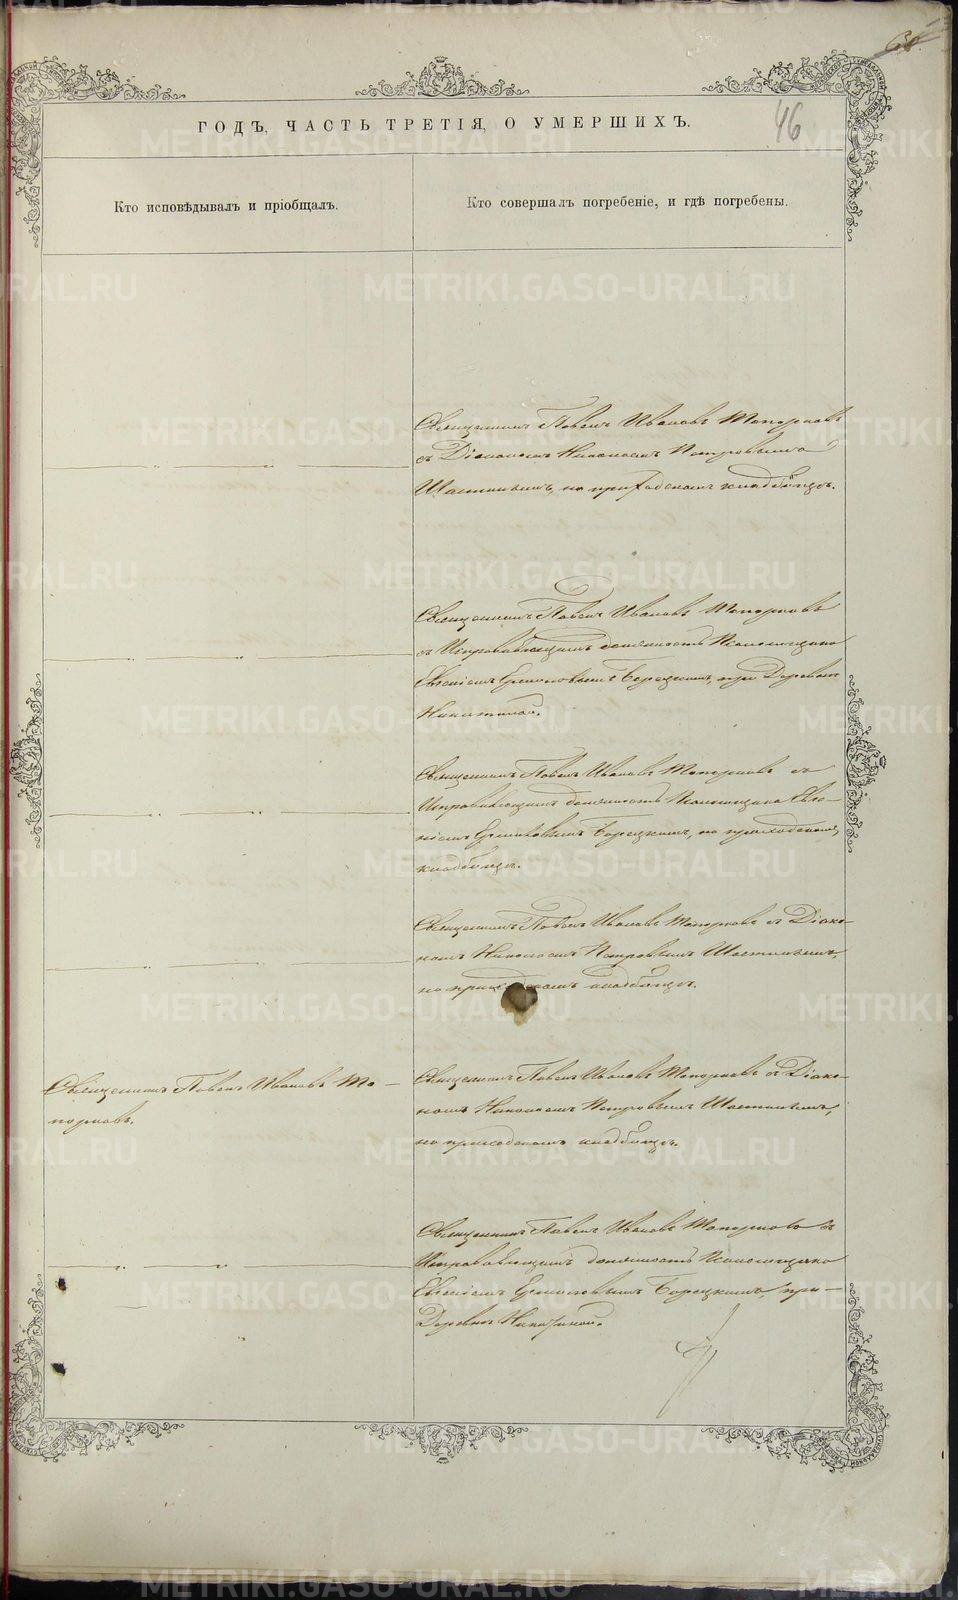 46
ГОДЪ, ЧАСТЬ ТРЕТІЯ, О УМЕРШИХЪ.
Кто исповѣдывалъ и пріобщалъ.
Кто совершалъ погребеніе, и гдѣ погребены.
Священникъ Павелъ Ивановъ Топорковъ
съ Діакономъ Николаемъ Петровымъ
на приходскомъ кладбищѣ.
Священникъ Павелъ Ивановъ Топорковъ
съ Исправляющимъ должность Псаломщика
Евгеніемъ Ермиловымъ Борецкимъ, при Деревнѣ
Никитиной.
Священникъ Павелъ Ивановъ Топорковъ съ
Исправляющимъ должность Псаломщика Евге-
ніемъ Ермиловымъ Борецкимъ, на приходскомъ
кладбищѣ.
Священникъ Павелъ Ивановъ Топорковъ съ Діако-
номъ Николаемъ Петровымъ
на приходскомъ кладбищѣ.
Священникъ Павелъ Ивановъ То-
порковъ.
Священникъ Павелъ Ивановъ Топорковъ съ Діако-
номъ Николаемъ Петровымъ
на приходскомъ кладбищѣ.
Священникъ Павелъ Ивановъ Топорковъ съ
Исправляющимъ должность Псаломщика
Евгеніемъ Ермиловымъ Борецкимъ, при
Деревнѣ Никитиной.
METRIKI.GASO-URAL.RU